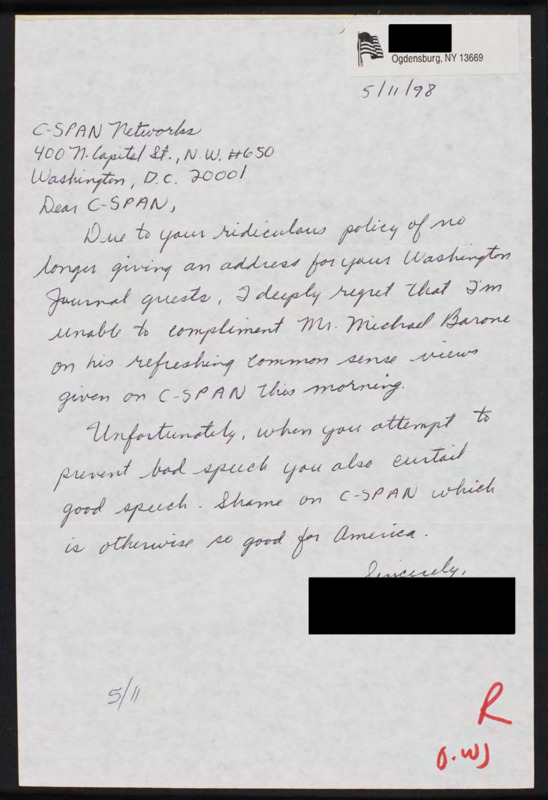 Ogdensburg, NY 13669
5/11/98
C-SPAN Networks
400 N. Capitol St., N.W. #650
Washington, D.C. 20001
Dear C-SPAN,
Due to your ridiculous policy of no
longer giving an address for your Washington
Journal guests, I deeply regret that I'm
unable to compliment Mr. Michael Barone
on his refreshing common sense views
given on C-SPAN this morning.
Unfortunately, when you attempt to
prevent bad speech you also curtail
good speech. Shame on C-SPAN which
is otherwise so good for America.
Sincerely,
5/11
R
O.WJ